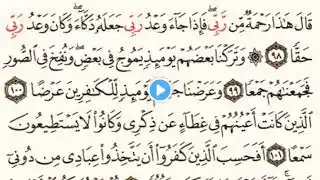 قَالَ هَٰذَا رَحْمَةٌ مِّن رَّبِّي ۖ فَإِذَا جَآءَ وَعْدُ رَبِّي جَعَلَهُۥ دَكَّآءَ ۖ وَكَانَ وَعْدُ رَبِّي
حَقًّا ٩٨ وَتَرَكْنَا بَعْضَهُمْ يَوْمَئِذٍ يَمُوجُ فِي بَعْضٍ ۖ وَنُفِخَ فِي ٱلصُّورِ
فَجَمَعْنَٰهُمْ جَمْعًا ٩٩ وَعَرَضْنَا يَوْمَئِذٍ لِّلْكَٰفِرِينَ عَرْضًا ١٠٠
ٱلَّذِينَ كَانَتْ أَعْيُنُهُمْ فِي غِطَآءٍ عَن ذِكْرِي وَكَانُوا۟ لَا يَسْتَطِيعُونَ
سَمْعًا ١٠١ أَفَحَسِبَ ٱلَّذِينَ كَفَرُوٓا۟ أَن يَتَّخِذُوا۟ عِبَادِي مِن دُونِيٓ